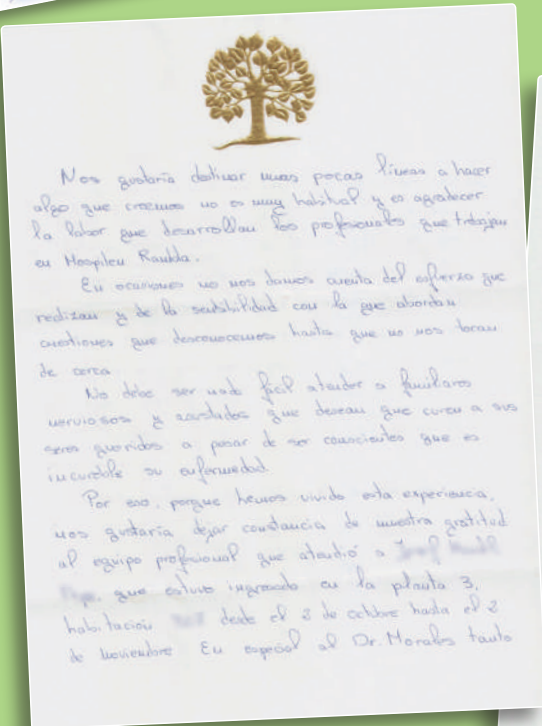 Nos gustaría destinar unas pocas líneas a hacer
algo que creemos no es muy habitual y es agradecer
la labor que desarrollan los profesionales que trabajan
en
En ocasiones no nos damos cuenta del esfuerzo que
realizan y de la sensibilidad con la que abordan
cuestiones que desconocemos hasta que no nos tocan
de cerca.
No debe ser nada fácil atender a familiares
nerviosos y asustados que desean que curen a sus
seres queridos a pesar de ser conscientes que es
incurable su enfermedad.
Por eso, porque hemos vivido esta experiencia,
nos gustaría dejar constancia de nuestra gratitud
al equipo profesional que atendió a
que estuvo ingresado en la planta 3,
habitación desde el 2 de octubre hasta el 2
de noviembre. En especial al Dr. Morales tanto